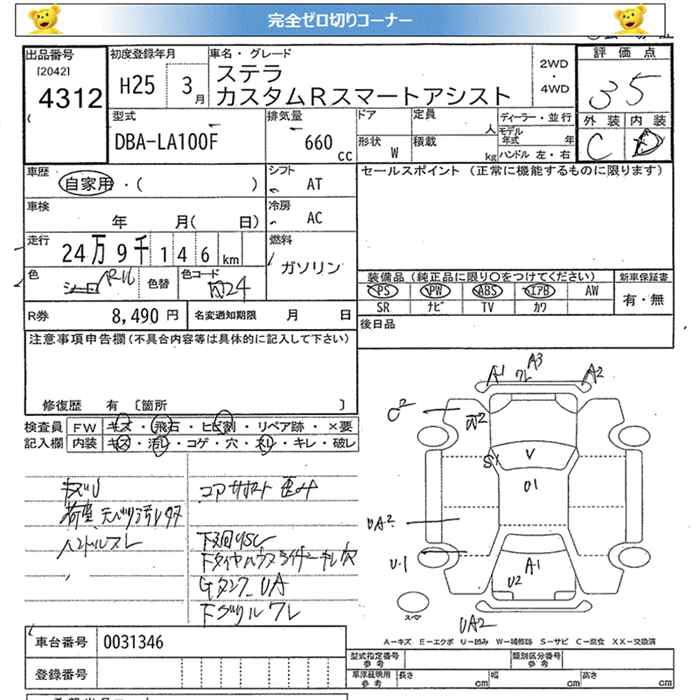 完全ゼロ切りコーナー
出品番号
[2042]
4312
初度登録年月
H25 3月
車名・グレード
ステラ
カスタムRスマートアシスト
2WD
・
4WD
評価点
35
外装 内装
C D
型式
DBA-LA100F
排気量
660 cc
ドア 定員 人
形状 W 積載 kg
ディーラー・並行
モデル年式 年
ハンドル 左・右
車歴
自家用・( )
シフト
AT
車検
年 月( 日)
冷房
AC
走行
24万9千146km
燃料
ガソリン
色
色替
色コード
R券 8,490円
名変通知期限 月 日
セールスポイント (正常に機能するものに限ります)
装備品 (純正品に限り〇をつけてください)
PS PW ABS エアB AW
SR ナビ TV カワ
新車保証書
有・無
後日品
注意事項申告欄(不具合内容等は具体的に記入して下さい)
修復歴 有 〔箇所 〕
検査員記入欄
FW キズ・飛石・ヒビ割・リペア跡・×要
内装 キズ・汚レ・コゲ・穴・スレ・キレ・破レ
コアサポート歪み
ハンドルスレ
A1 A3 A2
C2
S1 V
U1
UA2
U1
A1
U2
UA2
スペア
A-キズ E-エクボ U-凹み W-補修跡 S-サビ C-腐食 XX-交換済
車台番号 0031346
登録番号
型式指定番号 参考
類別区分番号 参考
車庫証明用 参考 長さ cm 幅 cm 高さ cm